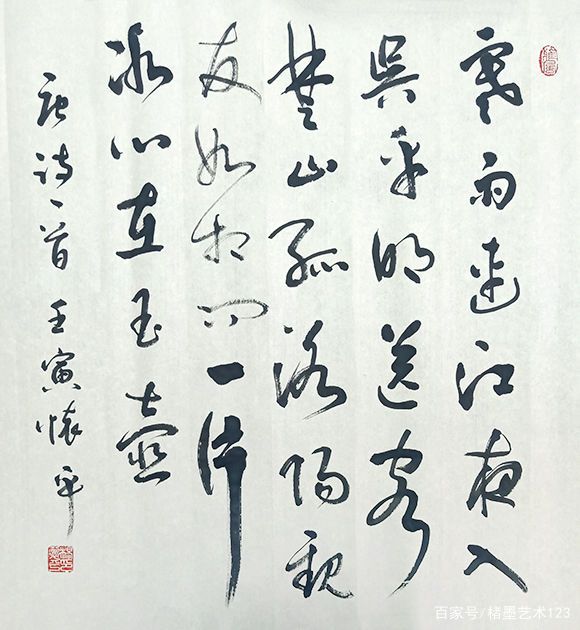 寒雨连江夜入
吴平明送客
楚山孤洛阳亲
友如相问一片
冰心在玉壶
唐诗一首 壬寅怀平
百家号/楮墨艺术123